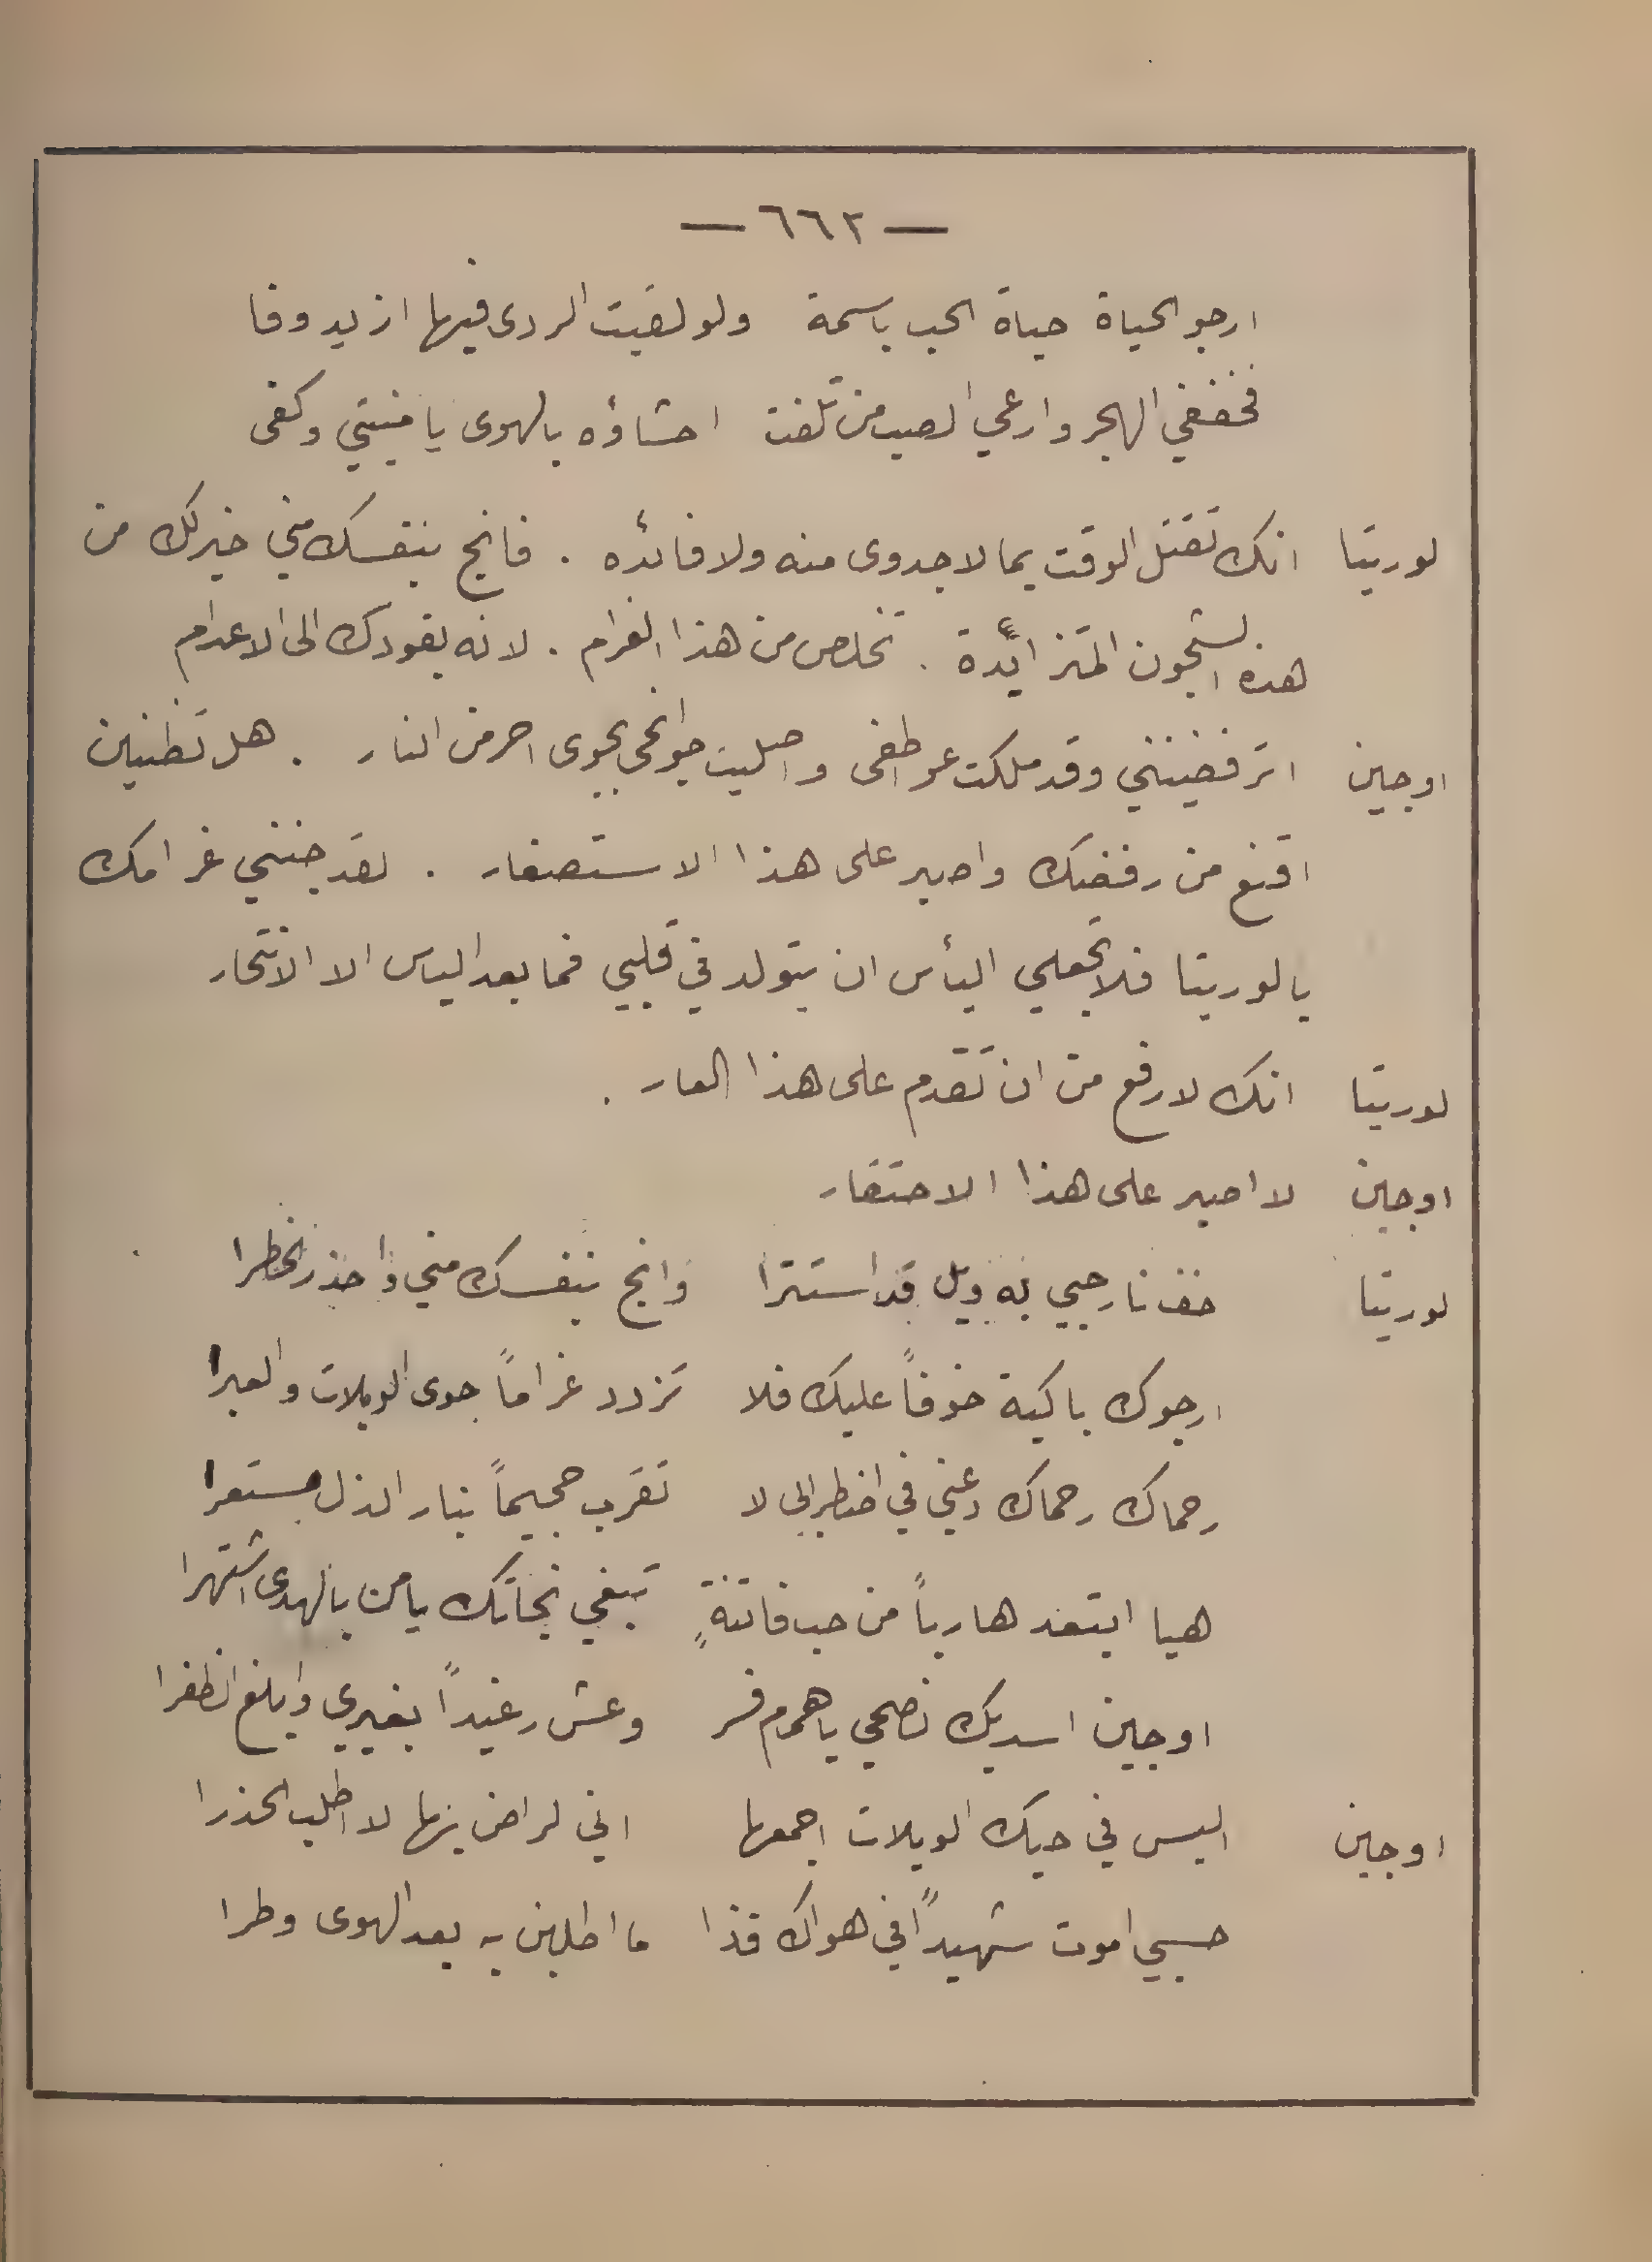 — ٦٦٢ —
ارجو الحياة حياة الحب باسمة ولو لقيت الردى فيها ازيد وفا
فخففي الهجر وارعي الصب من تلفت احشاؤه بالهوى يا منيتي وكفى
لوريتا انك تقتل الوقت بما لا جدوى منه ولا فائده . فانج بنفسك مني خير لك من
هذه الشجون المتزائدة . تخلص من هذا الغرام . لانه يقودك الى الاعدام
اوجين اترفضينني وقد ملكت عواطفي واصليت جوانحي بجوى احر من النار . هل تظنين
اقنع من رفضك واصبر على هذا الاستصغار . لقد جنني غرامك
يا لوريتا فلا تجعلي اليأس ان يتولد في قلبي فما بعد الياس الا الانتحار
لوريتا انك لارفع من ان تقدم على هذا العار .
اوجين لا اصبر على هذا الاحتقار
لوريتا خف نار حبي به ويل قد استترا وانج بنفسك مني واحذر الخطرا
ارجوك باكية خوفاً عليك فلا تزدد غراماً جوى الويلات والعبرا
رحماك رحماك دعني في اضطرابي لا تقرب جحيماً بنار الذل مستعرا
هيا ابتعد هارباً من حب فاتنةٍ تبغي نجاتك يا من بالهدى اشتهرا
اوجين اسديك نصحي يا همام فسر وعش رغيداً بغيري وابلغ الظفرا
اوجين اليس في حبك الويلات اجمعها اني لراض بها لا اطلب الحذرا
حسبي اموت شهيداً في هواك فذا ما اطلبن به بعد الهوى وطرا